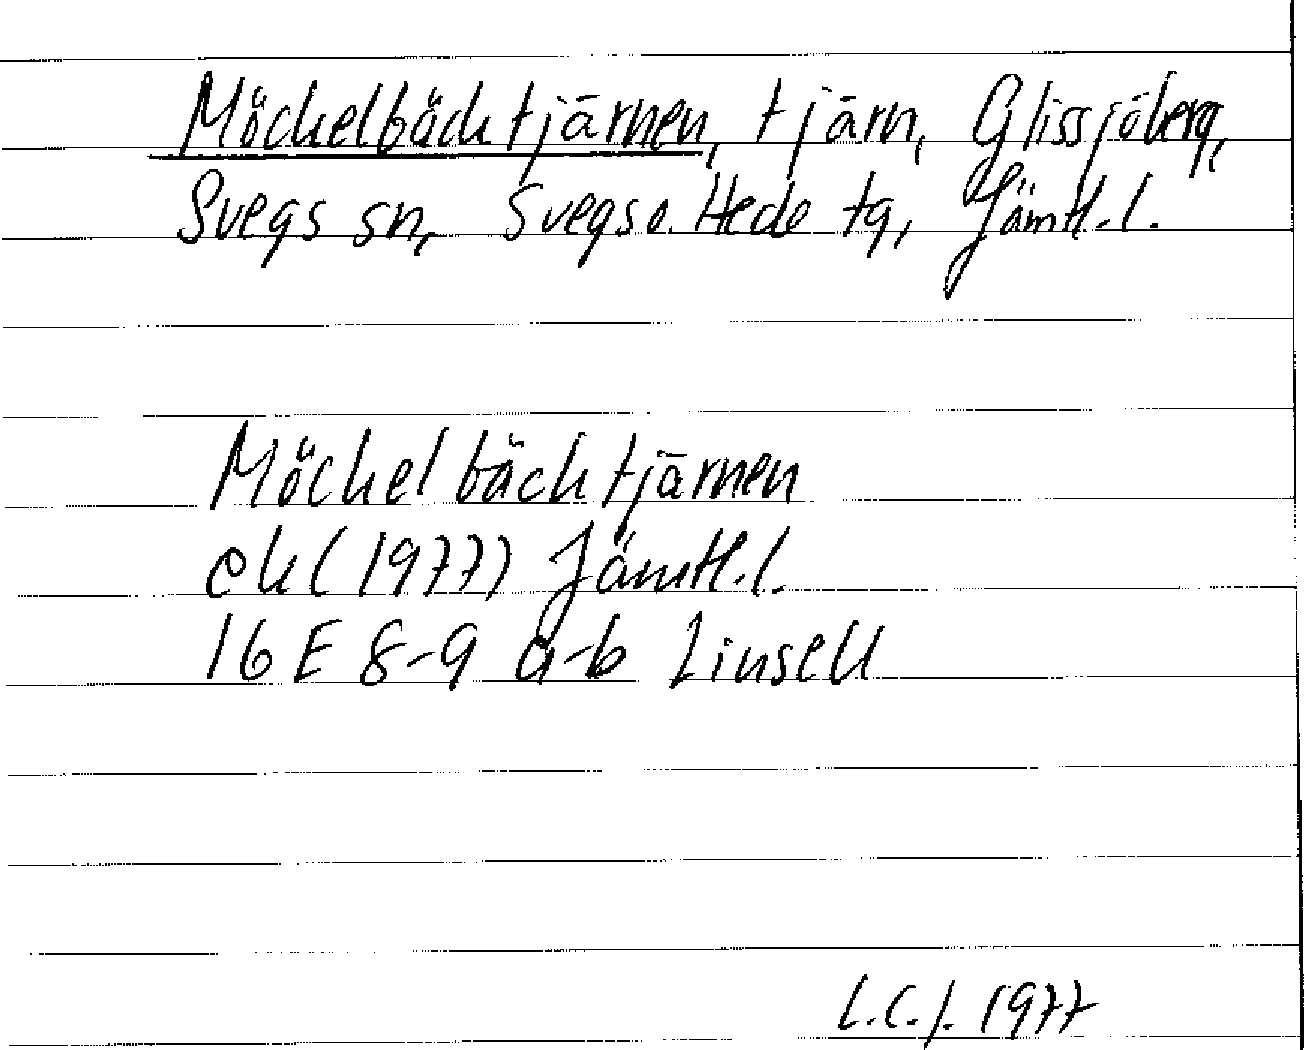 Möckelbäcktjärnen, tjärn, Glissjöberg,
Svegs sn, Svegs o. Hede tg, Jämtl. l.
Möckelbäcktjärnen
ek (1977) Jämtl. l.
16 E 8-9 a-b Linsell
L.C.J. 1977